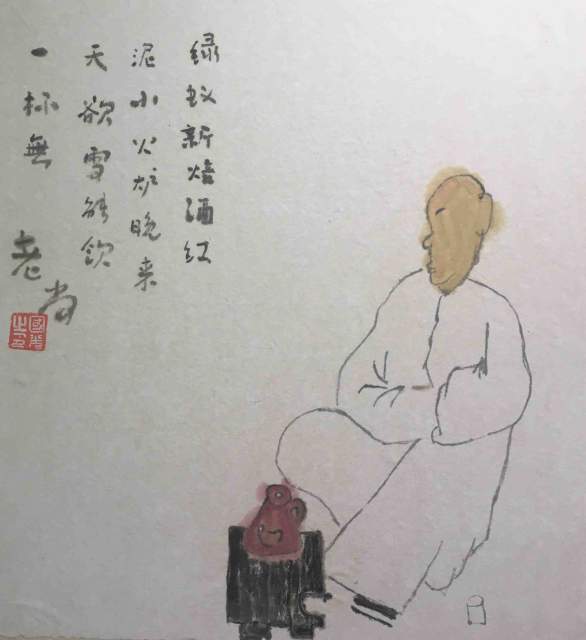 绿蚁新焙酒红
泥小火炉晚来
天欲雪能饮
一杯無
老尚